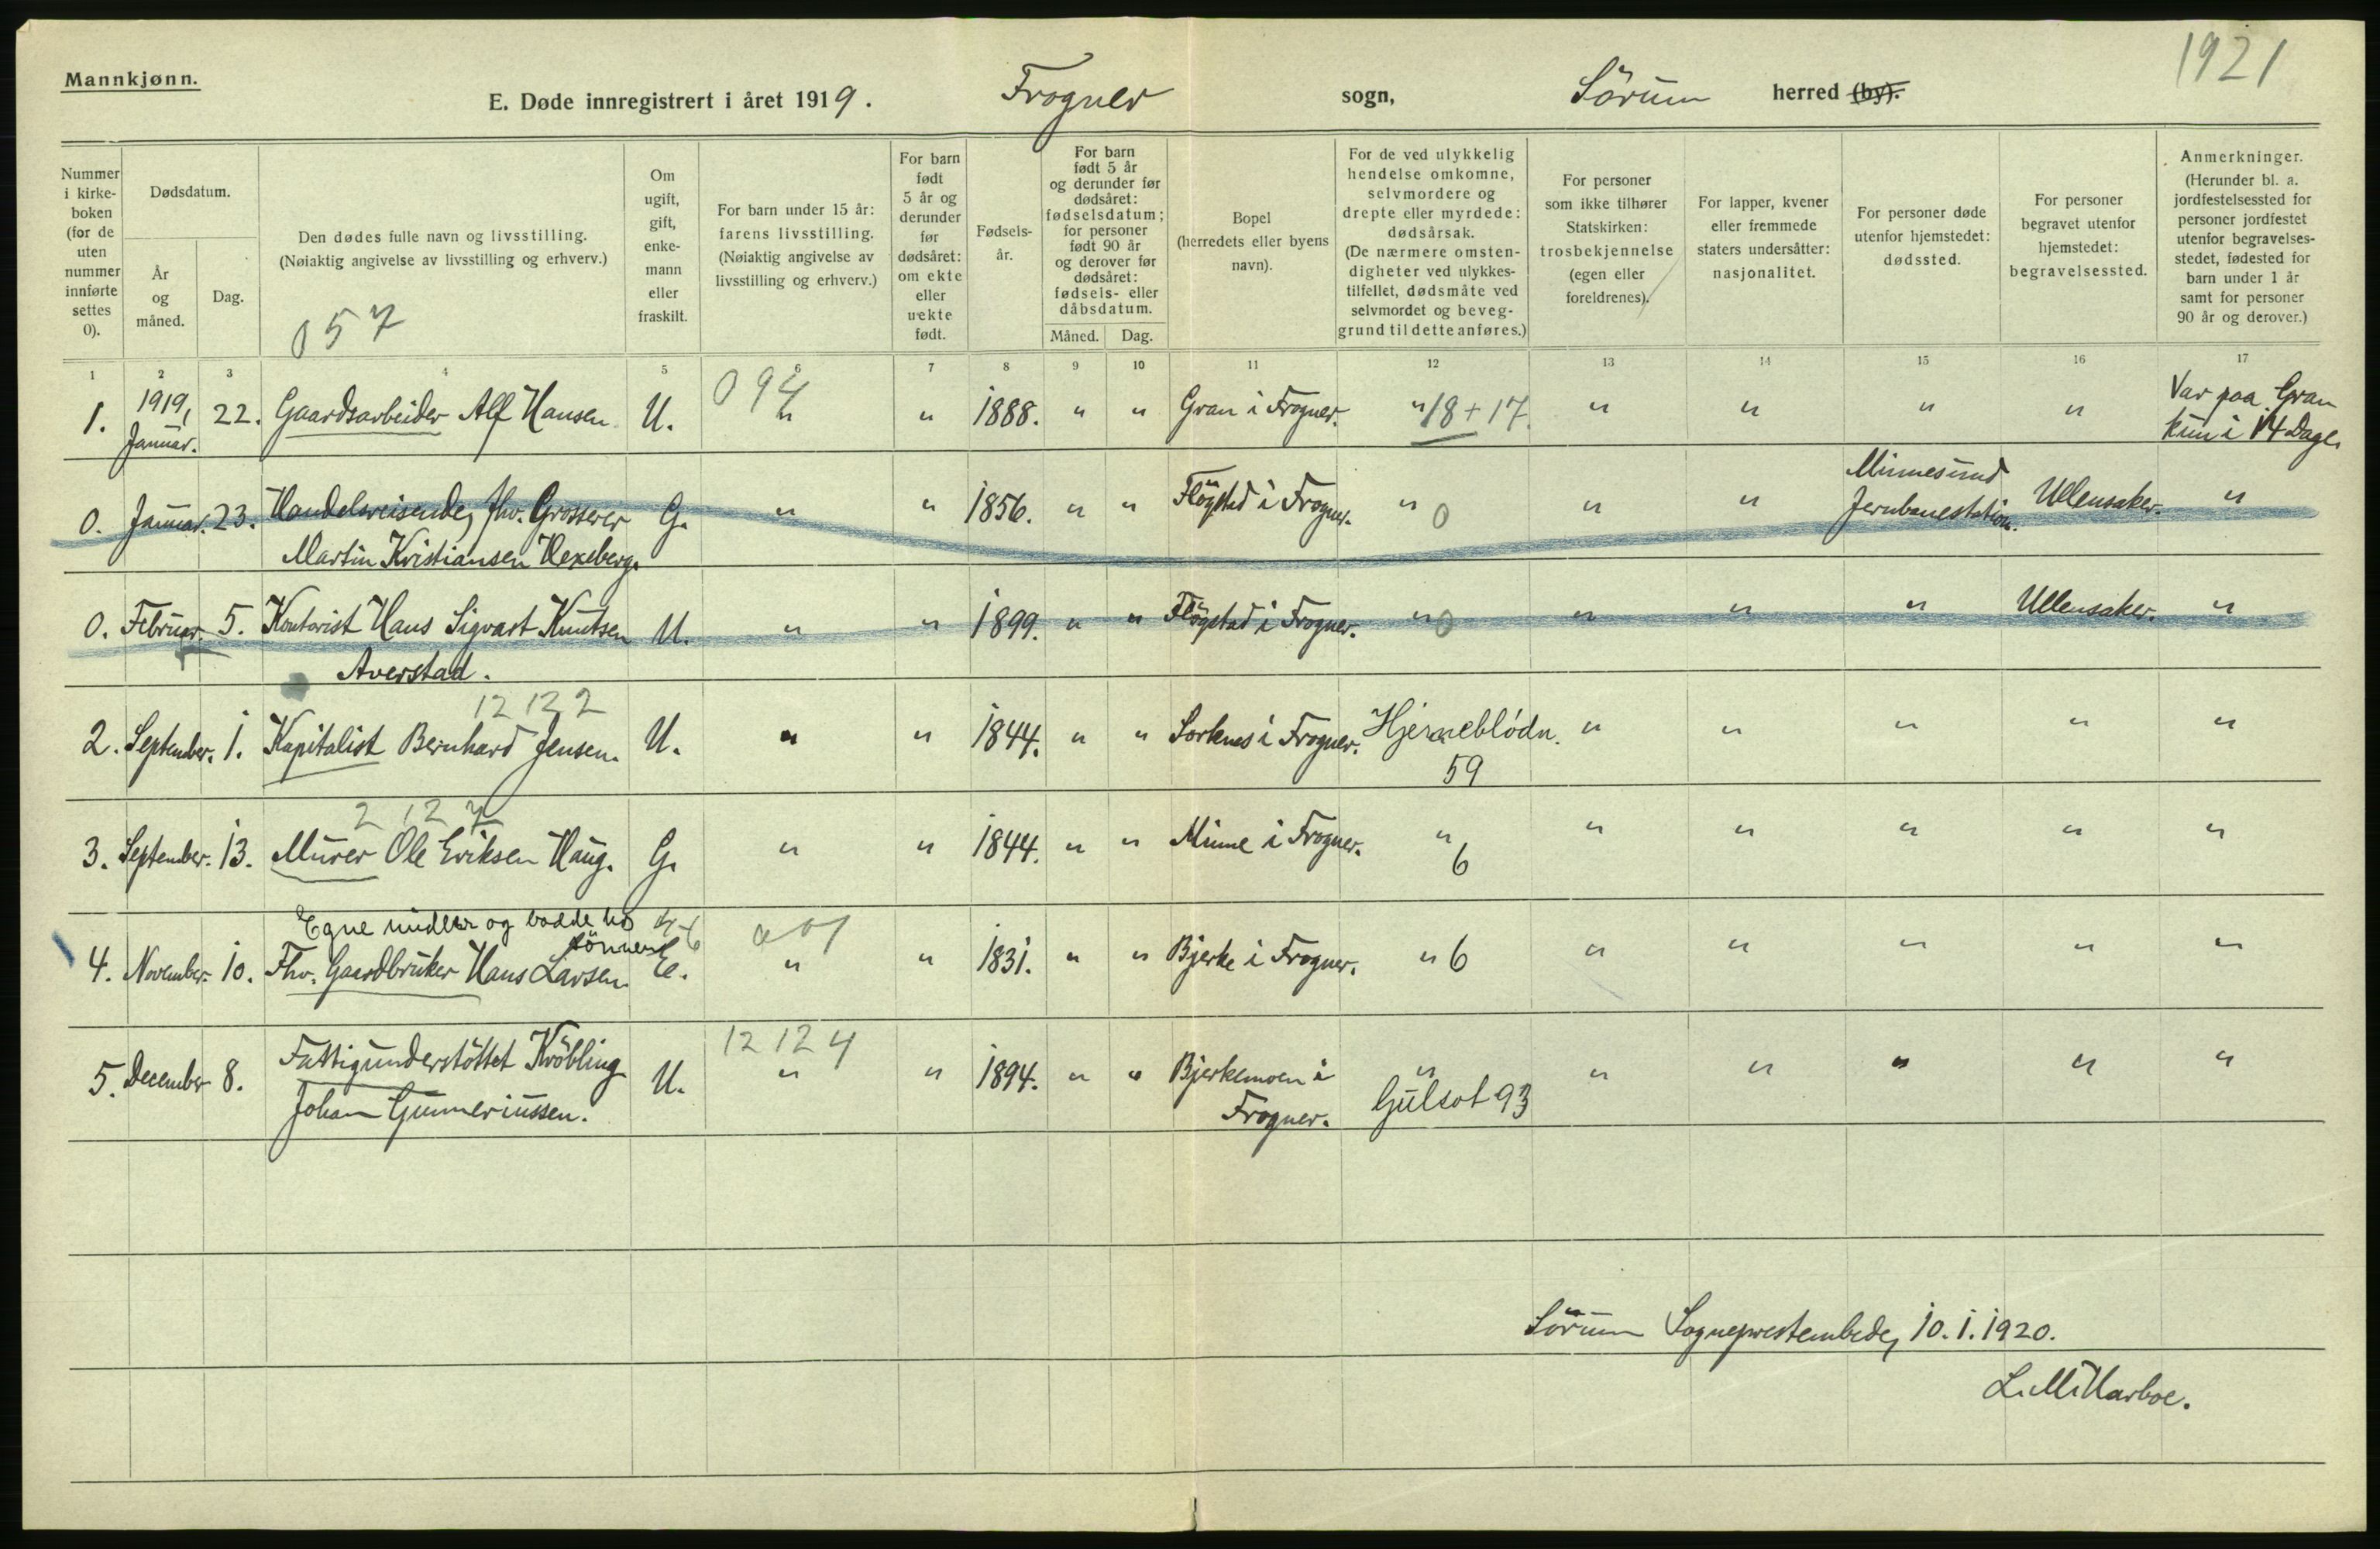 1921
Mannkjønn.
E. Døde innregistrert i året 1919. Frogner sogn, Sörum herred (by).
Nummer
i kirke-
boken
(for de
uten
nummer
innførte
settes
0).
Dødsdatum.
År
og
måned.
Dag.
Den dødes fulle navn og livsstilling.
(Nøiaktig angivelse av livsstilling og erhverv.)
057
Om
ugift,
gift,
enke-
mann
eller
fraskilt.
For barn under 15 år:
farens livsstilling.
(Nøiaktig angivelse av
livsstilling og erhverv.)
For barn
født
5 år og
derunder
før
dødsåret:
om ekte
eller
uekte
født.
Fødsels-
år.
For barn
født 5 år
og derunder før
dødsåret:
fødselsdatum;
for personer
født 90 år
og derover før
dødsåret:
fødsels- eller
dåbsdatum.
Måned. Dag.
Bopel
(herredets eller byens
navn).
For de ved ulykkelig
hendelse omkomne,
selvmordere og
drepte eller myrdede:
dødsårsak.
(De nærmere omsten-
digheter ved ulykkes-
tilfellet, dødsmåte ved
selvmordet og beveg-
grund til dette anføres.)
For personer
som ikke tilhører
Statskirken:
trosbekjennelse
(egen eller
foreldrenes).
For lapper, kvener
eller fremmede
staters undersåtter:
nasjonalitet.
For personer døde
utenfor hjemstedet:
dødssted.
For personer
begravet utenfor
hjemstedet:
begravelsessted.
Anmerkninger.
(Herunder bl. a.
jordfestelsessted for
personer jordfestet
utenfor begravelses-
stedet, fødested for
barn under 1 år
samt for personer
90 år og derover.)
1 2 3 4 5 6 7 8 9 10 11 12 13 14 15 16 17
094
1919,
1. Januar. 22. Gaardsarbeider Alf Hansen U. " " 1888. " " Gran i Frogner. " 18+17. " " " " Var paa Gran
kun i 14 Dage.
0. Januar. 23. Handelsreisende, fhv. Grosserer G. " " 1856. " " Flögstad i Frogner. " 0 " " Minnesund
Jernbanestation. Ullensaker. "
Martin Kristiansen Hexeberg.
0. Februar. 5. Kontorist Hans Sigvart Knutsen U. " " 1899. " " Flögstad i Frogner. " 0 " " " Ullensaker. "
Averstad.
12 12 2
2. September. 1. Kapitalist Bernhard Jensen. U. " " 1844. " " Sorknes i Frogner. Hjerneblödn. " " " " "
59
2 12 7
3. September. 13. Murer Ole Eriksen Haug. G. " " 1844. " " Minne i Frogner. " " " " " "
6
Egne midler og bodde hos
sönnen
4. November. 10. Fhv. Gaardbruker Hans Larsen. E. " " 1831. " " Bjerke i Frogner. " 6 " " " " "
12 12 4
5. December 8. Fattigunderstöttet Kröbling U. " " 1894. " " Bjerkemoen i " " " " " "
Johan Gunneriussen. Frogner. Gulsot 93
Sörum Sogneprestembede, 10.1.1920.
L. M. Harboe.